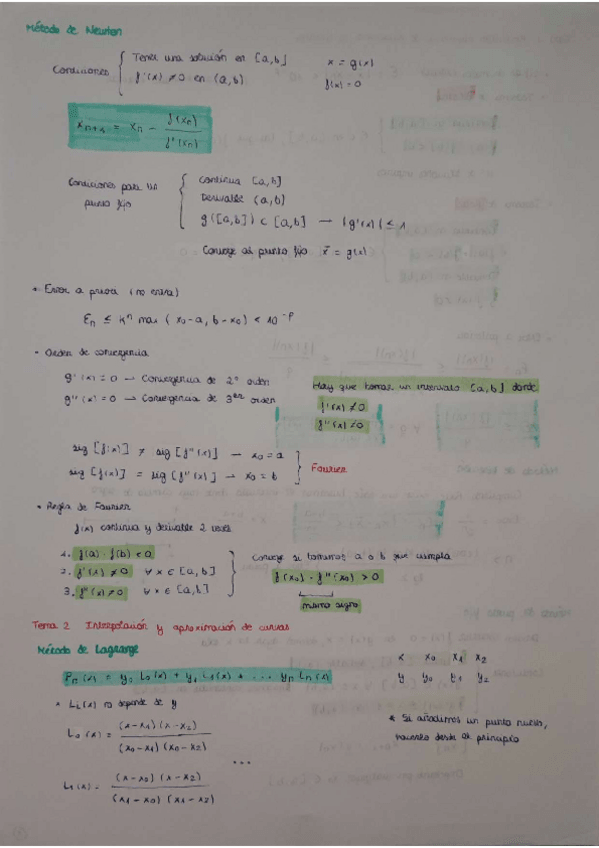 Método de Newton
Condiciones { Tener una solución en [a,b]   x = g(x)
f'(x) ≠ 0 en (a,b)   f(x) = 0
x_{n+1} = x_n - f(x_n) / f'(x_n)
Condiciones para un punto fijo { continua [a,b]
Derivable (a,b)
g([a,b]) ⊂ [a,b] → |g'(x)| ≤ 1
Converge al punto fijo x̄ = g(x)
* Error a priori (no entra)
E_n ≤ K^n max (x_0-a, b-x_0) < 10^{-p}
· Orden de convergencia
g'(x) = 0 → Convergencia de 2º orden
g''(x) = 0 → Convergencia de 3^{er} orden
Hay que tomar un intervalo [a,b] donde
f'(x) ≠ 0
f''(x) ≠ 0
sig [f(x)] ≠ sig [f''(x)] → x_0 = a
sig [f(x)] = sig [f''(x)] → x_0 = b } Fourier
* Regla de Fourier
f(x) continua y derivable 2 veces
1. f(a) · f(b) < 0
2. f'(x) ≠ 0 ∀ x ∈ [a,b]
3. f''(x) ≠ 0 ∀ x ∈ [a,b]
} Converge si tomamos a o b que cumpla
f(x_0) · f''(x_0) > 0
mismo signo
Tema 2 Interpolación y aproximación de curvas
Método de Lagrange
P_n(x) = y_0 L_0(x) + y_1 L_1(x) + ... y_n L_n(x)
x x_0 x_1 x_2
y y_0 y_1 y_2
* L_i(x) no depende de y
L_0(x) = (x-x_1)(x-x_2) / (x_0-x_1)(x_0-x_2)
* Si añadimos un punto nuevo,
hacerlo desde el principio
...
L_1(x) = (x-x_0)(x-x_2) / (x_1-x_0)(x_1-x_2)